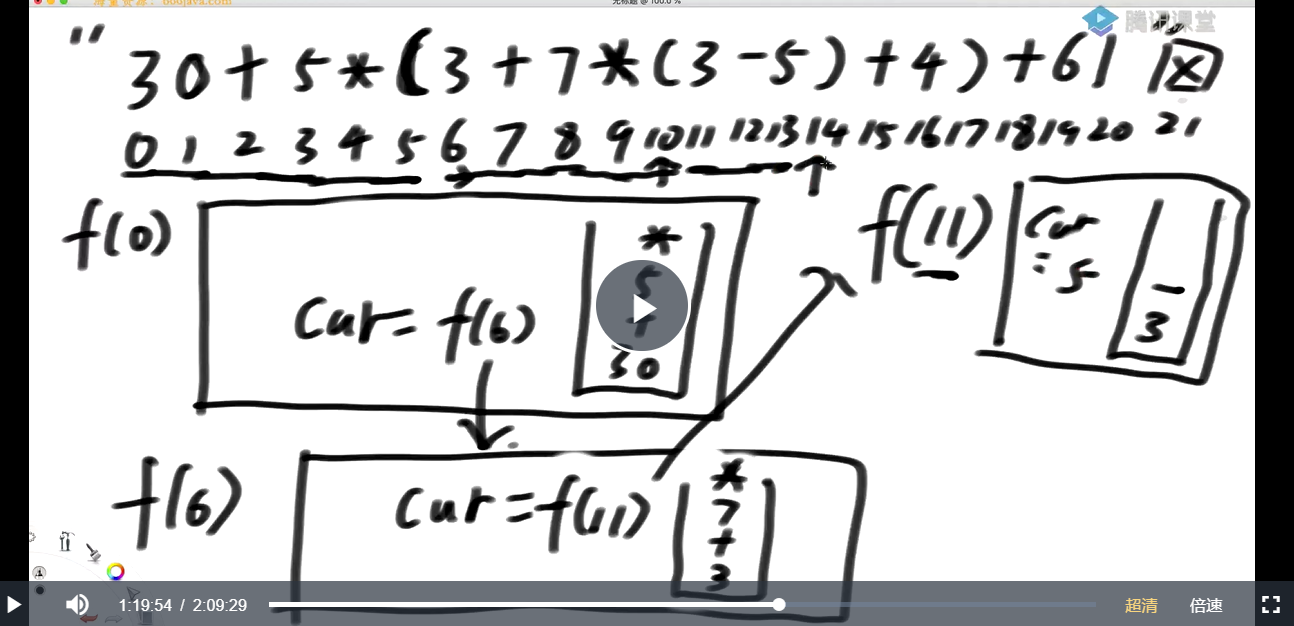 海量资源：666java.com
无标题 @ 100.0 %
腾讯课堂
" 30+5*(3+7*(3-5)+4)+61
0 1 2 3 4 5 6 7 8 9 10 11 12 13 14 15 16 17 18 19 20 21
f(0)
cur=f(6)
*
5
+
30
f(11)
cur
=5
-
3
f(6)
cur=f(11)
*
7
+
3
1:19:54 / 2:09:29
超清
倍速